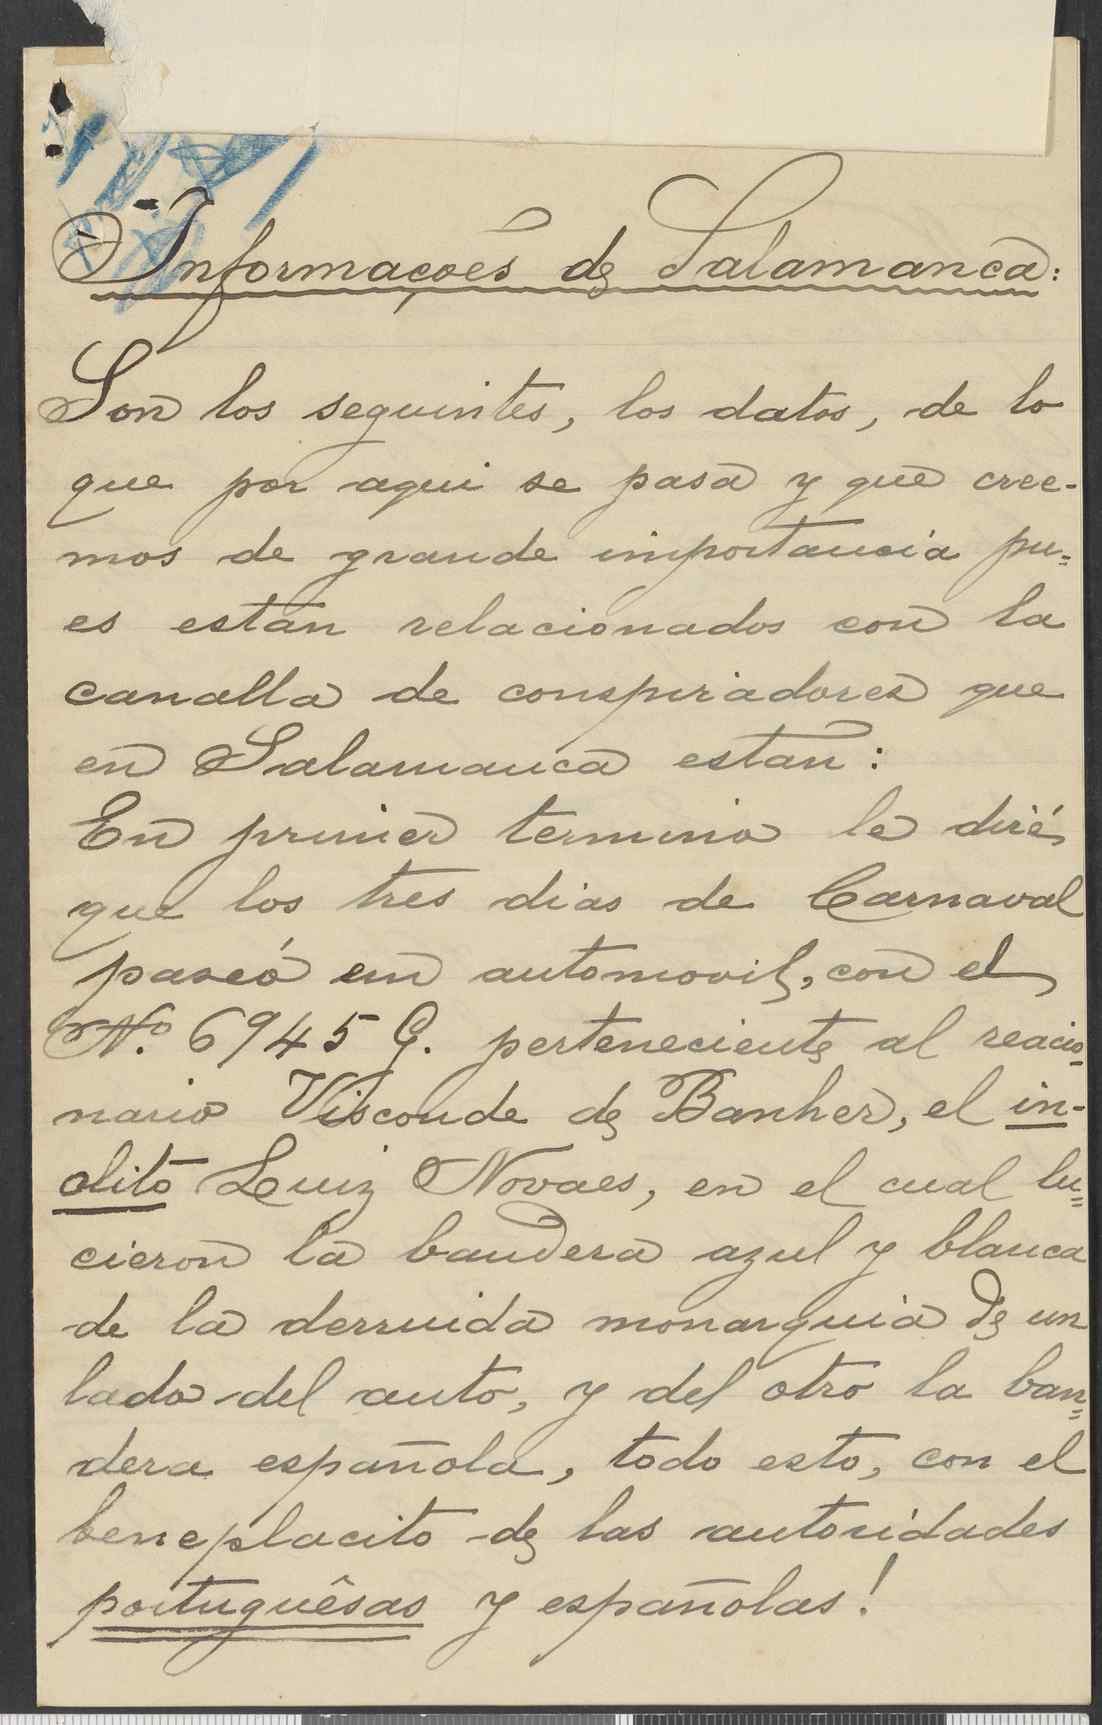 Informações de Salamanca:
Son los seguintes, los datos, de lo
que por aqui se pasa y que cree-
mos de grande importancia pu=
es están relacionados con la
canalla de conspiradores que
en Salamanca están:
En primer termino le diré
que los tres dias de Carnaval
paseó un automovil, con el
Nº. 6945 G. perteneciente al reacio=
nario Visconde de Banher, el in-
clito Luiz Novaes, en el cual lu=
cieron la bandera azul y blanca
de la derruida monarquia de un
lado del auto, y del otro la ban=
dera española, todo esto, con el
beneplacito de las autoridades
portuguêsas y españolas!